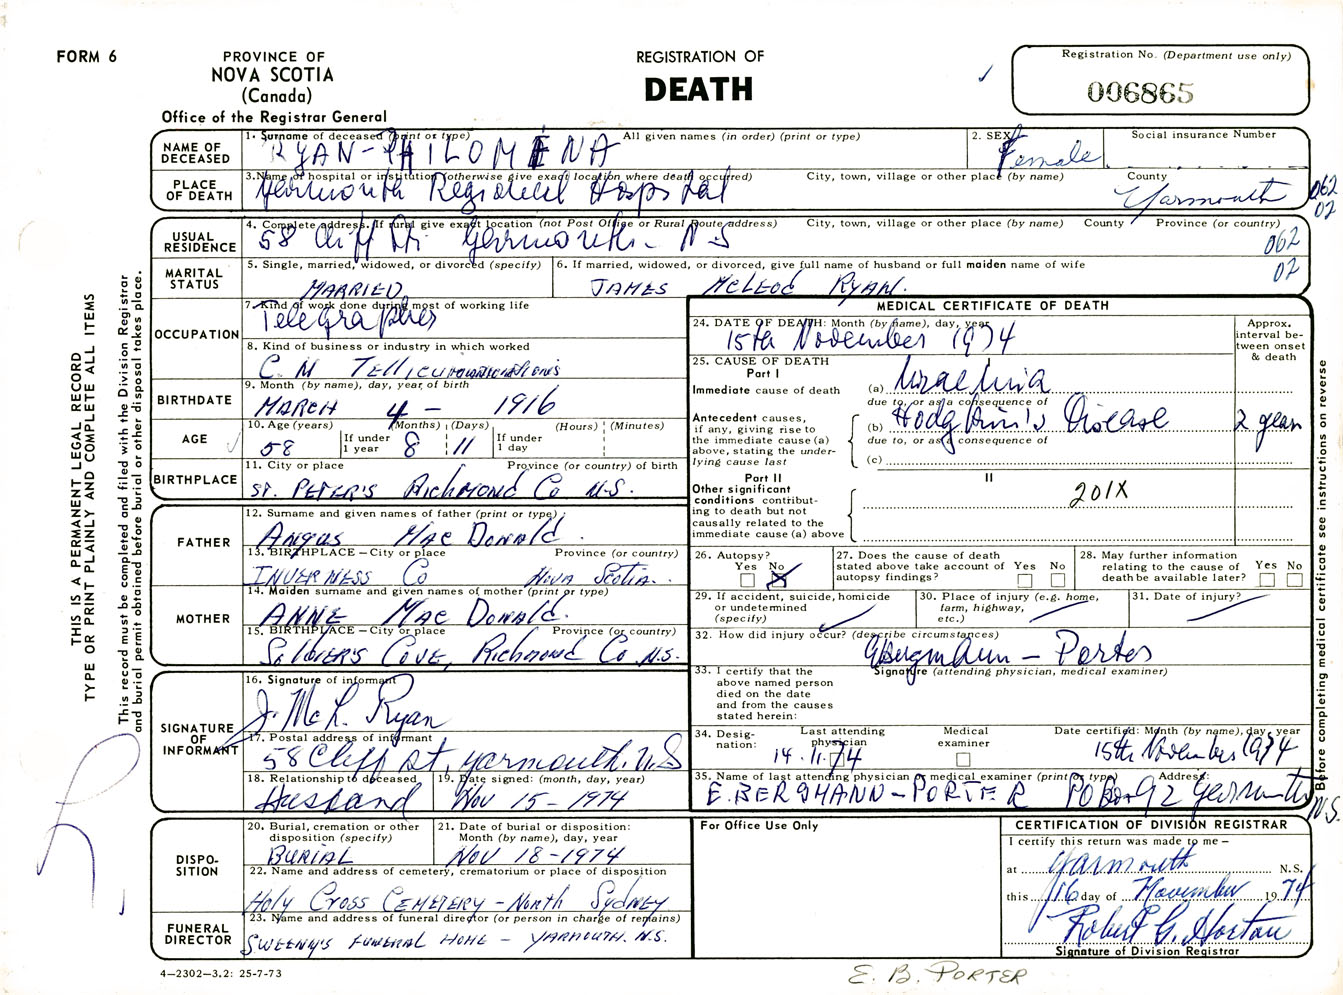 FORM 6
PROVINCE OF
NOVA SCOTIA
(Canada)
Office of the Registrar General
REGISTRATION OF
DEATH
Registration No. (Department use only)
006865
NAME OF DECEASED
1. Surname of deceased (print or type) All given names (in order) (print or type)
RYAN - PHILOMENA
2. SEX
Female
Social insurance Number
PLACE OF DEATH
3. Name of hospital or institution (otherwise give exact location where death occurred) City, town, village or other place (by name) County
Yarmouth Regional Hospital Yarmouth
062
02
USUAL RESIDENCE
4. Complete address. If rural give exact location (not Post Office or Rural Route address) City, town, village or other place (by name) County Province (or country)
58 Cliff St. Yarmouth - N S
062
02
MARITAL STATUS
5. Single, married, widowed, or divorced (specify)
MARRIED
6. If married, widowed, or divorced, give full name of husband or full maiden name of wife
JAMES McLEOD RYAN.
OCCUPATION
7. Kind of work done during most of working life
Telegrapher
8. Kind of business or industry in which worked
C. N
BIRTHDATE
9. Month (by name), day, year of birth
MARCH 4 - 1916
AGE
10. Age (years) If under 1 year (Months) (Days) If under 1 day (Hours) (Minutes)
58 8 11
BIRTHPLACE
11. City or place Province (or country) of birth
ST. PETER'S RICHMOND Co N.S.
FATHER
12. Surname and given names of father (print or type)
ANGUS MAC DONALD.
13. BIRTHPLACE - City or place Province (or country)
INVERNESS Co NOVA SCOTIA.
MOTHER
14. Maiden surname and given names of mother (print or type)
ANNE MAC DONALD.
15. BIRTHPLACE - City or place Province (or country)
SOLDIER'S COVE, RICHMOND Co N.S.
SIGNATURE OF INFORMANT
16. Signature of informant
J. McL. Ryan
17. Postal address of informant
58 Cliff St, Yarmouth. N.S
18. Relationship to deceased
Husband
19. Date signed: (month, day, year)
Nov 15 - 1974
DISPOSITION
20. Burial, cremation or other disposition (specify)
BURIAL
21. Date of burial or disposition: Month (by name), day, year
NOV 18 - 1974
22. Name and address of cemetery, crematorium or place of disposition
HOLY CROSS CEMETERY - NORTH SYDNEY
FUNERAL DIRECTOR
23. Name and address of funeral director (or person in charge of remains)
SWEENY'S FUNERAL HOME - YARMOUTH. N.S.
4-2302-3.2: 25-7-73
MEDICAL CERTIFICATE OF DEATH
24. DATE OF DEATH: Month (by name), day, year
15th November 1974
Approx. interval between onset & death
25. CAUSE OF DEATH
Part I
Immediate cause of death (a) Uraemia
due to, or as a consequence of
Antecedent causes, if any, giving rise to the immediate cause (a) above, stating the underlying cause last
(b) Hodgkin's Disease 2 years
due to, or as a consequence of
(c)
Part II
Other significant conditions contributing to death but not causally related to the immediate cause (a) above
II
201X
26. Autopsy? Yes No
27. Does the cause of death stated above take account of autopsy findings? Yes No
28. May further information relating to the cause of death be available later? Yes No
29. If accident, suicide, homicide or undetermined (specify)
30. Place of injury (e.g. home, farm, highway, etc.)
31. Date of injury?
32. How did injury occur? (describe circumstances)
EBergmann - Porter
33. I certify that the above named person died on the date and from the causes stated herein:
Signature (attending physician, medical examiner)
34. Designation: Last attending physician Medical examiner
14.11.74
Date certified: Month (by name), day, year
15th November 1974
35. Name of last attending physician or medical examiner (print or type) Address:
E. BERGMANN - PORTER PO Box 92 Yarmouth N.S.
For Office Use Only
CERTIFICATION OF DIVISION REGISTRAR
I certify this return was made to me -
at Yarmouth N.S.
this 16 day of November 1974
Robert G. Horton
Signature of Division Registrar
E. B. PORTER
THIS IS A PERMANENT LEGAL RECORD
TYPE OR PRINT PLAINLY AND COMPLETE ALL ITEMS
This record must be completed and filed with the Division Registrar
and burial permit obtained before burial or other disposal takes place.
Before completing medical certificate see instructions on reverse